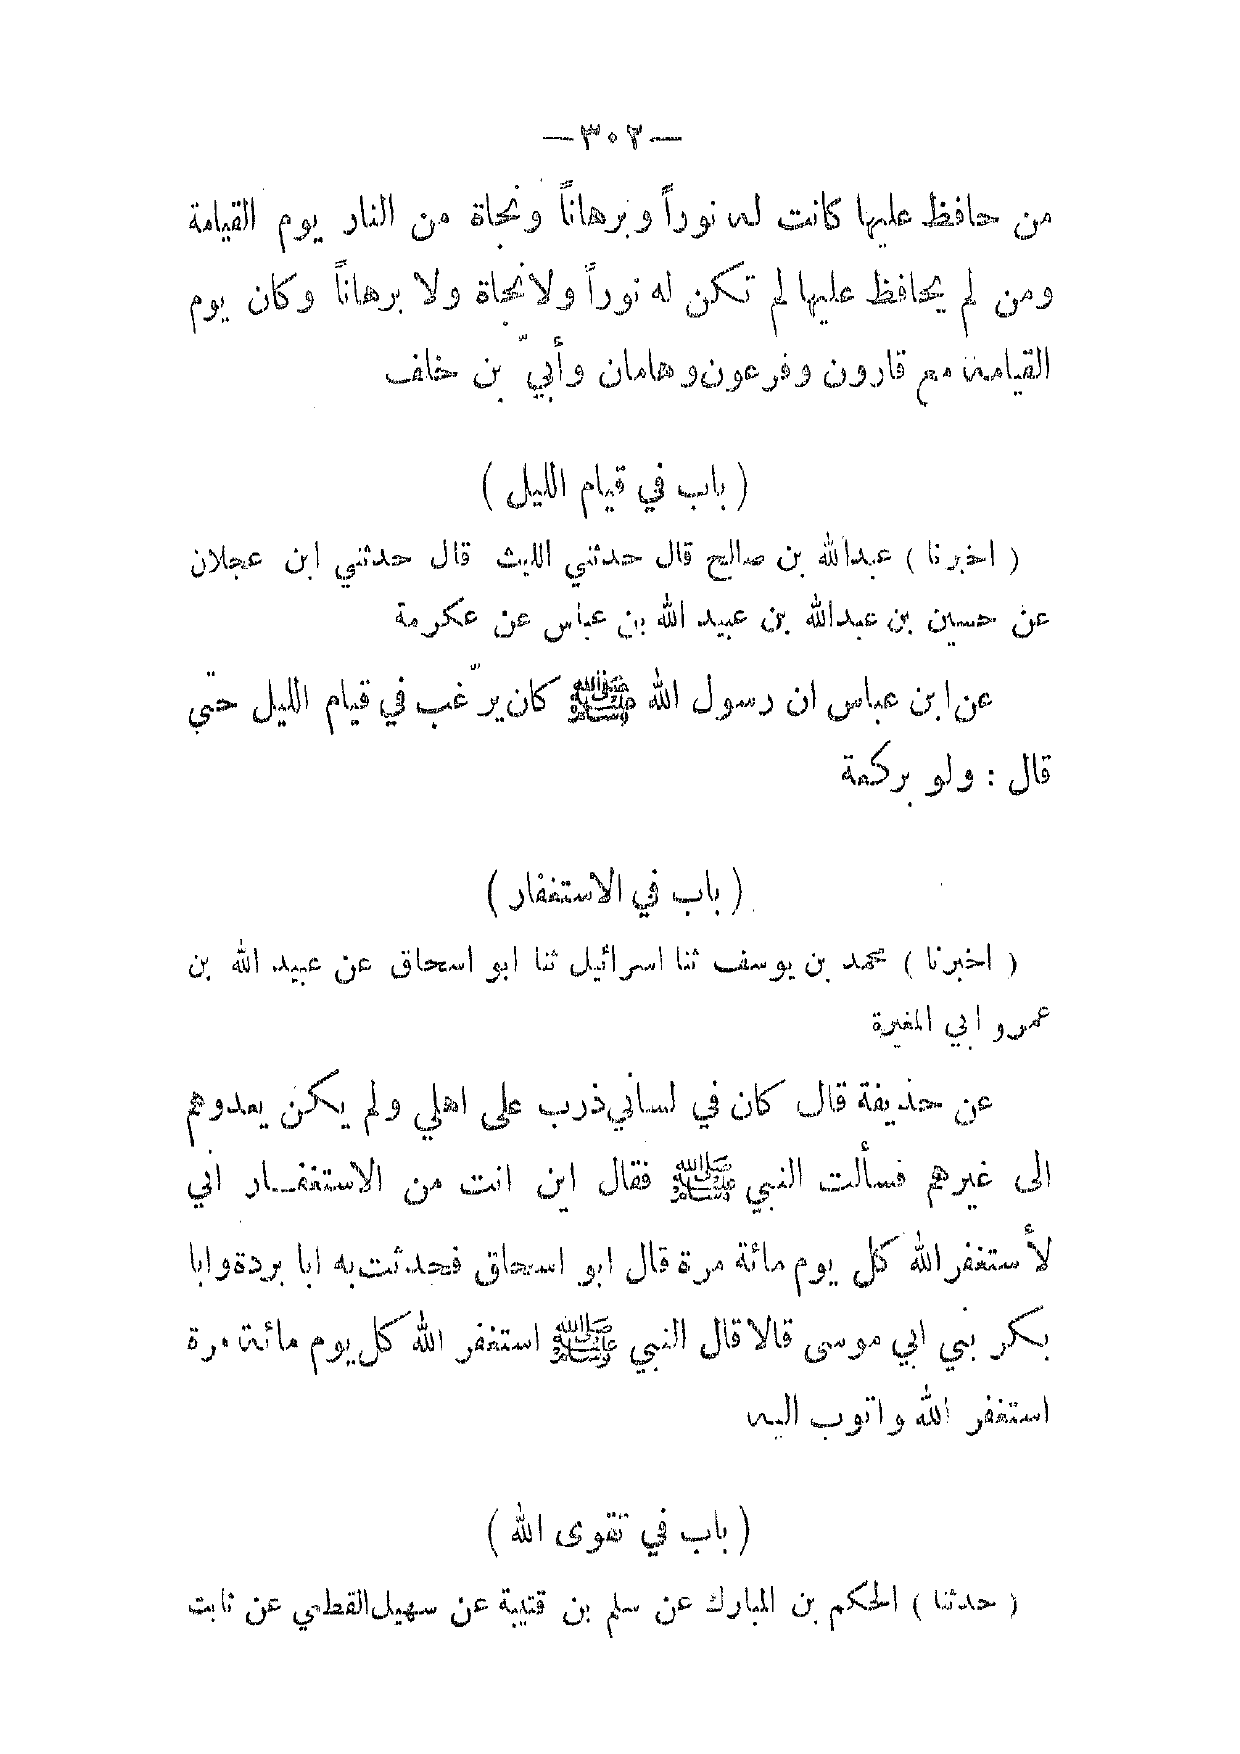 —٣٠٢—
من حافظ عليها كانت له نوراً وبرهاناً ونجاة من النار يوم القيامة
ومن لم يحافظ عليها لم تكن له نوراً ولانجاة ولا برهاناً وكان يوم
القيامة مع قارون وفرعون وهامان وأبيّ بن خلف
( باب في قيام الليل )
( اخبرنا ) عبدالله بن صالح قال حدثني الليث قال حدثني ابن عجلان
عن حسين بن عبدالله بن عبيد الله بن عباس عن عكرمة
عن ابن عباس ان رسول الله ﷺ كان يرّغب في قيام الليل حتّى
قال : ولو بركعة
( باب في الاستغفار )
( اخبرنا ) محمد بن يوسف ثنا اسرائيل ثنا ابو اسحاق عن عبيد الله بن
عمرو ابي المغيرة
عن حذيفة قال كان في لساني ذرب على اهلي ولم يكن يعدوهم
الى غيرهم فسألت النبي ﷺ فقال اين انت من الاستغفـار اني
لأستغفر الله كل يوم مائة مرة قال ابو اسحاق فحدثت به ابا بردة وابا
بكر بني ابي موسى قالا قال النبي ﷺ استغفر الله كل يوم مائة مرة
استغفر الله واتوب اليه
( باب في تقوى الله )
( حدثنا ) الحكم بن المبارك عن سلم بن قتيبة عن سهيل القطعي عن ثابت